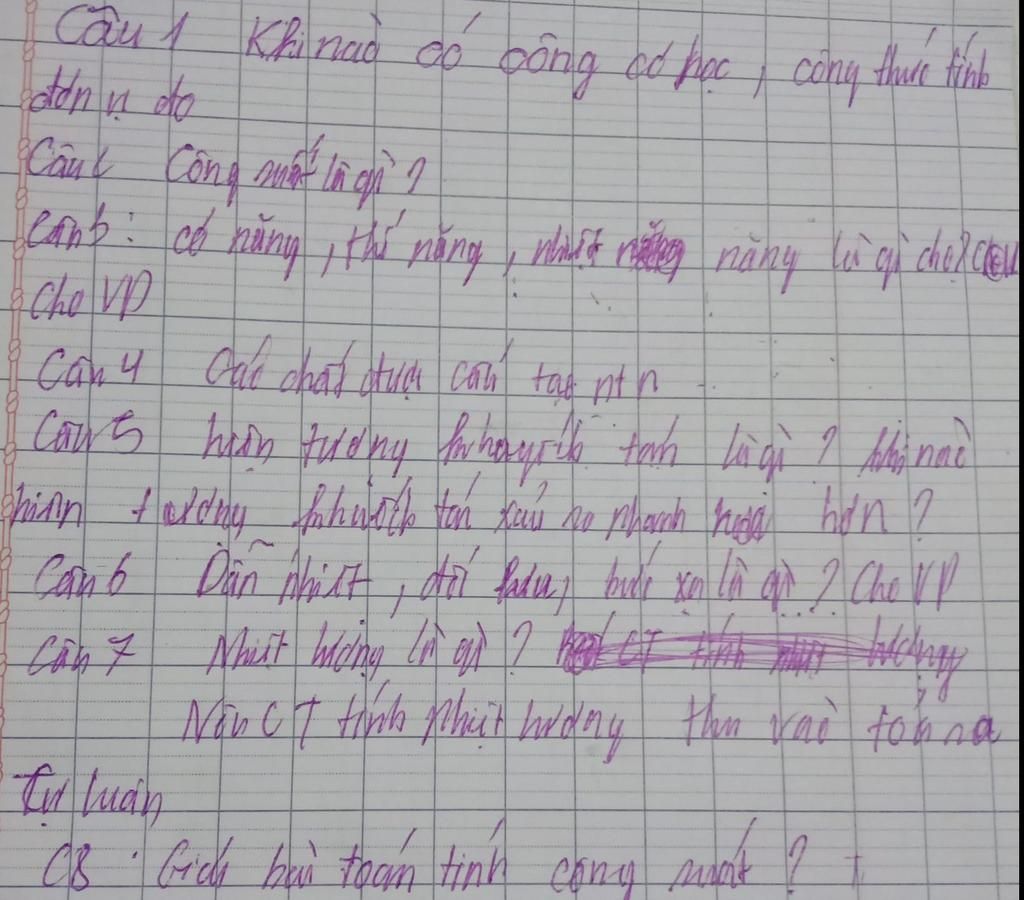 Câu 1 Khi nào có công cơ học, công thức tính
đơn vị đo
Câu 2 Công suất là gì?
Câu 3: cơ năng, thế năng, nhiệt năng là gì cho?
Cho VD
Câu 4 Các chất được cấu tạo ntn
Câu 5 hiện tượng khuếch tán là gì? khi nào
hiện tượng khuếch tán xảy ra nhanh hơn?
Câu 6 Dẫn nhiệt, đối lưu, bức xạ là gì? Cho VD
Câu 7 Nhiệt lượng là gì? CT tính nhiệt lượng
Nêu CT tính nhiệt lượng thu vào tỏa ra
Tự luận
C8: Giải bài toán tính công suất?